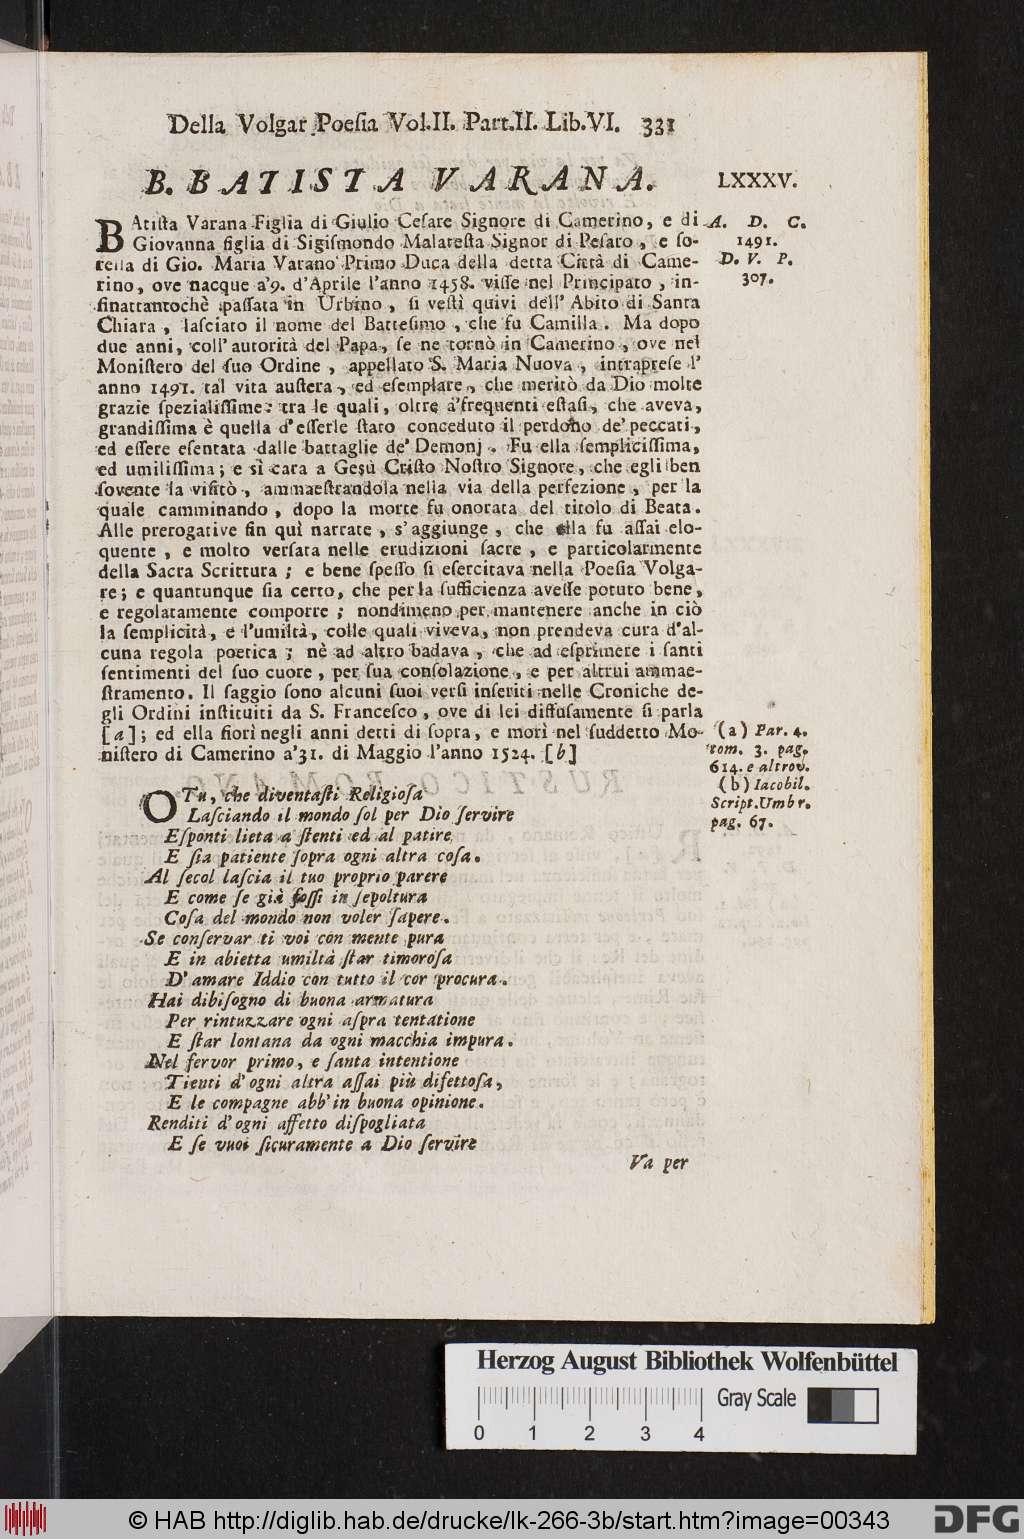 Della Volgar Poeſia Vol.II. Part.II. Lib.VI. 331
B. BATISTA VARANA.
LXXXV.
BAtiſta Varana Figlia di Giulio Ceſare Signore di Camerino, e di
Giovanna figlia di Sigiſmondo Malateſta Signor di Peſaro, e ſo-
rella di Gio. Maria Varano Primo Duca della detta Città di Came-
rino, ove nacque a'9. d'Aprile l'anno 1458. viſſe nel Principato, in-
finattantochè paſſata in Urbino, ſi veſtì quivi dell' Abito di Santa
Chiara, laſciato il nome del Batteſimo, che fu Camilla. Ma dopo
due anni, coll' autorità del Papa, ſe ne tornò in Camerino, ove nel
Moniſtero del ſuo Ordine, appellato S. Maria Nuova, intrapreſe l'
anno 1491. tal vita auſtera, ed eſemplare, che meritò da Dio molte
grazie ſpezialiſſime: tra le quali, oltre a'frequenti eſtaſi, che aveva,
grandiſſima è quella d'eſſerle ſtato conceduto il perdono de' peccati,
ed eſſere eſentata dalle battaglie de' Demonj. Fu ella ſempliciſſima,
ed umiliſſima; e sì cara a Gesù Criſto Noſtro Signore, che egli ben
ſovente la viſitò, ammaeſtrandola nella via della perfezione, per la
quale camminando, dopo la morte fu onorata del titolo di Beata.
Alle prerogative fin quì narrate, s'aggiunge, che ella fu aſſai elo-
quente, e molto verſata nelle erudizioni ſacre, e particolarmente
della Sacra Scrittura; e bene ſpeſſo ſi eſercitava nella Poeſia Volga-
re; e quantunque ſia certo, che per la ſufficienza aveſſe potuto bene,
e regolatamente comporre; nondimeno per mantenere anche in ciò
la ſemplicità, e l'umiltà, colle quali viveva, non prendeva cura d'al-
cuna regola poetica; nè ad altro badava, che ad eſprimere i ſanti
ſentimenti del ſuo cuore, per ſua conſolazione, e per altrui ammae-
ſtramento. Il ſaggio ſono alcuni ſuoi verſi inſeriti nelle Croniche de-
gli Ordini inſtituiti da S. Franceſco, ove di lei diffuſamente ſi parla
[a]; ed ella fiorì negli anni detti di ſopra, e morì nel ſuddetto Mo-
niſtero di Camerino a'31. di Maggio l'anno 1524. [b]
A. D. C.
1491.
D. V. P.
307.
(a) Par. 4.
tom. 3. pag.
614. e altrov.
(b) Iacobil.
Script.Umbr.
pag. 67.
O Tu, che diventaſti Religioſa
Laſciando il mondo ſol per Dio ſervire
Eſponti lieta a ſtenti ed al patire
E ſia patiente ſopra ogni altra coſa.
Al ſecol laſcia il tuo proprio parere
E come ſe già foſſi in ſepoltura
Coſa del mondo non voler ſapere.
Se conſervar ti voi con mente pura
E in abietta umiltà ſtar timoroſa
D' amare Iddio con tutto il cor procura.
Hai dibiſogno di buona armatura
Per rintuzzare ogni aſpra tentatione
E ſtar lontana da ogni macchia impura.
Nel fervor primo, e ſanta intentione
Tienti d' ogni altra aſſai più difettoſa,
E le compagne abb' in buona opinione.
Renditi d' ogni affetto diſpogliata
E ſe vuoi ſicuramente a Dio ſervire
Va per
Herzog August Bibliothek Wolfenbüttel
Gray Scale
0 1 2 3 4
© HAB http://diglib.hab.de/drucke/lk-266-3b/start.htm?image=00343
DFG